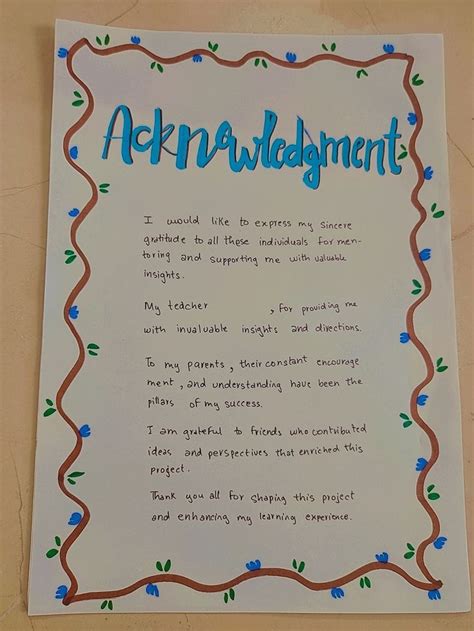 Acknowledgment
I would like to express my sincere
gratitude to all these individuals for men-
toring and supporting me with valuable
insights.
My teacher , for providing me
with invaluable insights and directions.
To my parents, their constant encourage
ment, and understanding have been the
pillars of my success.
I am grateful to friends who contributed
ideas and perspectives that enriched this
project.
Thank you all for shaping this project
and enhancing my learning experience.